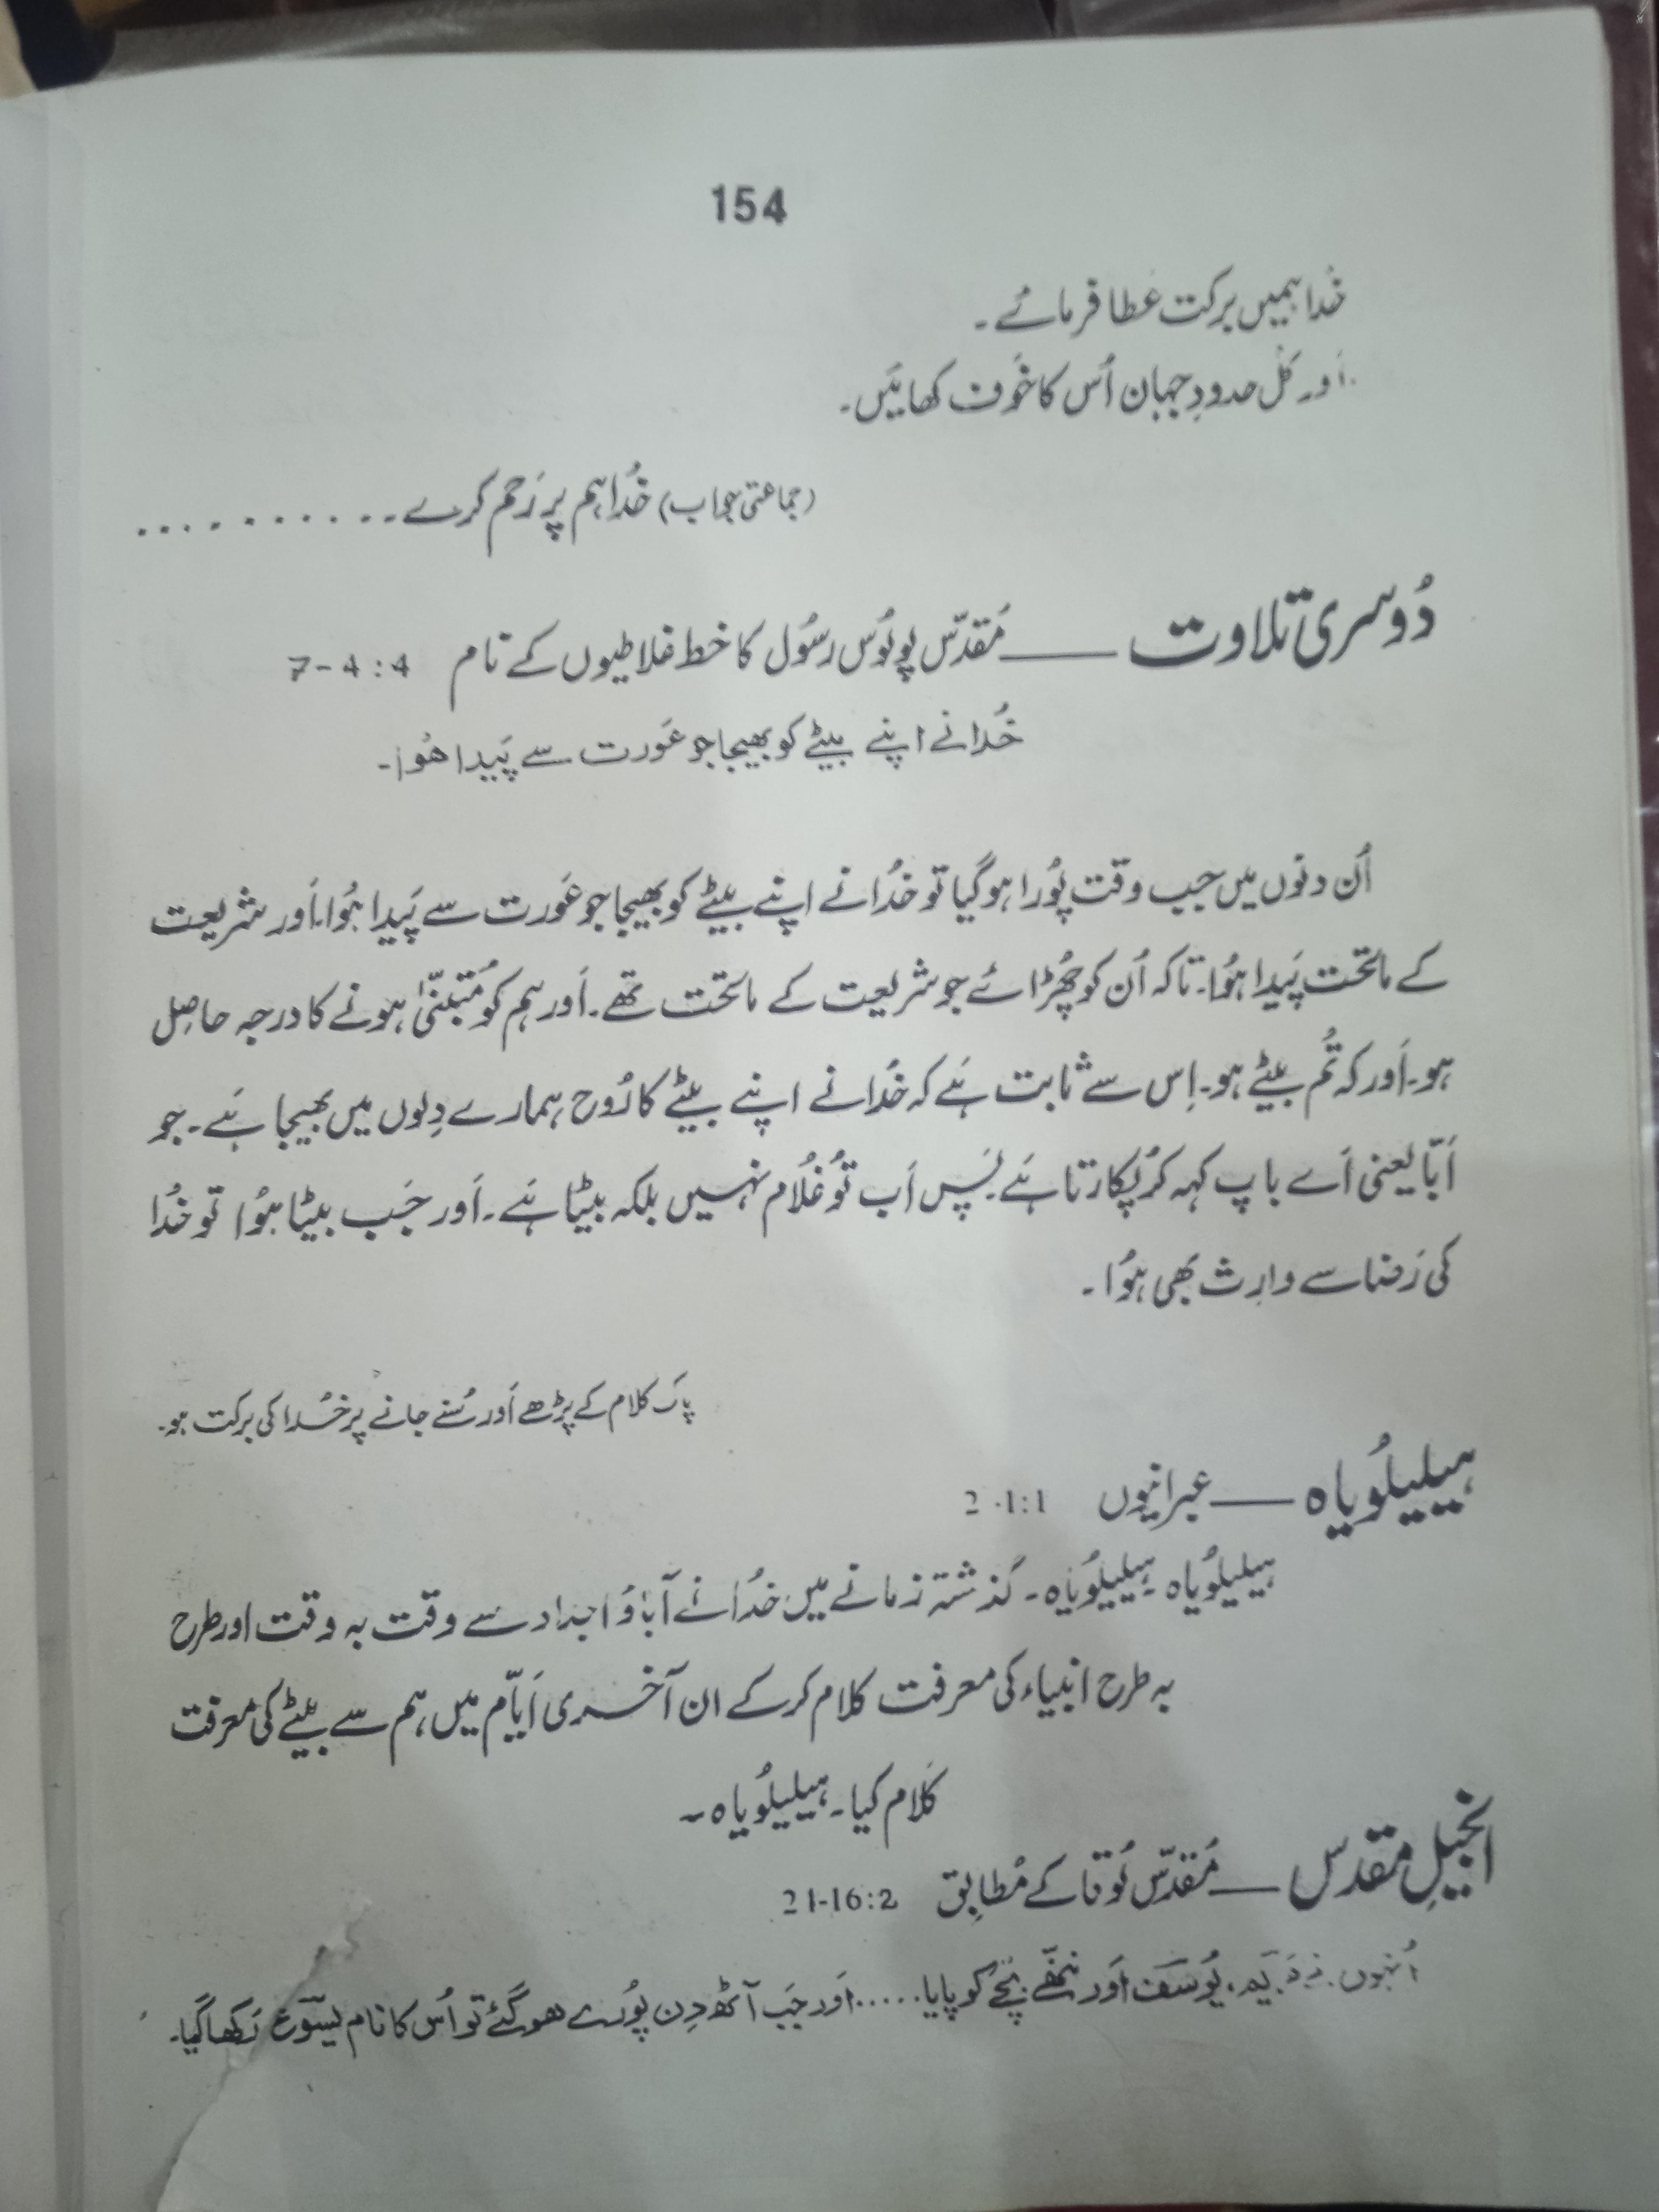 154
خُدا ہمیں برکت عطا فرمائے۔
اَور کُل حدودِ جہان اُس کا خَوف کھائیں۔
(جماعتی جواب) خُدا ہم پر رَحم کرے۔۔۔۔۔۔۔۔۔۔
دُوسری تلاوت ــــــ مُقدّس پولُوس رسُول کا خط غلاطیوں کے نام 4:4-7
خُدا نے اپنے بیٹے کو بھیجا جو عَورت سے پَیدا ہُوا۔
اُن دنوں میں جب وقت پُورا ہوگیا تو خُدا نے اپنے بیٹے کو بھیجا جو عَورت سے پَیدا ہُوا۔اَور شریعت
کے ماتحت پَیدا ہُوا۔تاکہ اُن کو چھُڑائے جو شریعت کے ماتحت تھے۔اَور ہم کو مُتبنّیٰ ہونے کا درجہ حاصِل
ہو۔اَور کہ تُم بیٹے ہو۔اِس سے ثابت ہَے کہ خُدا نے اپنے بیٹے کا رُوح ہمارے دِلوں میں بھیجا ہَے۔ جو
اَبّا یعنی اَے باپ کہہ کر پُکارتا ہَے۔پَس اَب تُو غُلام نہیں بلکہ بیٹا ہَے۔اَور جَب بیٹا ہُوا تو خُدا
کی رَضا سے وارِث بھی ہُوا۔
پاک کلام کے پڑھے اَور سُنے جانے پر خُدا کی برکت ہو۔
ہیلیلُویاہ ــــــ عبرانیوں 1:1-2
ہیلیلُویاہ ۔ہیلیلُویاہ۔ گذشتہ زمانے میں خُدا نے آباؤ اجداد سے وقت بہ وقت اور طرح
بہ طرح انبیاء کی معرفت کلام کرکے ان آخری اَیّام میں ہم سے بیٹے کی معرفت
کلام کیا۔ ہیلیلُویاہ۔
انجیلِ مقدس ــــــ مُقدّس لُوقا کے مُطابِق 2:16-21
اُنہوں یُوسف اَور ننھّے بچّے کو پایا.....اَور جَب آٹھ دِن پُورے ہوگئے تو اُس کا نام یسُوع رَکھا گیا۔